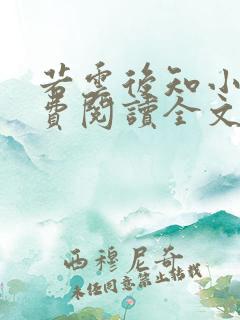 若雲後知小
費閱讀全文
西穆尼奇
未經同意禁止轉載